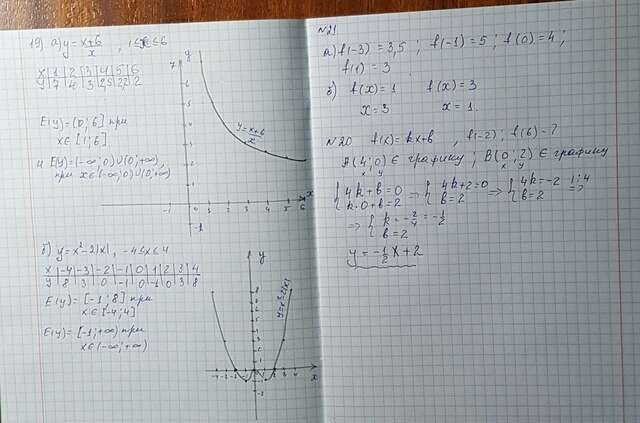 19) а) y = x+6/x , 1≤x≤6
x 1 2 3 4 5 6
y 7 4 3 2,5 2,2 2
E(y) = (0; 6] при
x∈[1; 6]
и E(y) = (-∞; 0)∪(0; +∞),
при x∈(-∞; 0)∪(0; +∞)
y = x+6/x
б) y = x²-2|x|, -4≤x≤4
x -4 -3 -2 -1 0 1 2 3 4
y 8 3 0 -1 0 -1 0 3 8
E(y) = [-1; 8] при
x∈[-4; 4]
E(y) = [-1; +∞) при
x∈(-∞; +∞)
y=x²-2|x|
№21
а) f(-3) = 3,5 ; f(-1) = 5 ; f(0) = 4 ;
f(1) = 3
б) f(x) = 1 f(x) = 3
x = 3 x = 1.
№20 f(x) = kx+b , f(-2); f(6) - ?
A(4; 0) ∈ графику ; B(0; 2) ∈ графику
x y x y
{4k + b = 0 ⇒ {4k+2=0 ⇒ {4k = -2 |:4
{k·0+b=2 {b=2 {b=2 ⇒
⇒ {k = -2/4 = -1/2
{b = 2
y = -1/2 x + 2